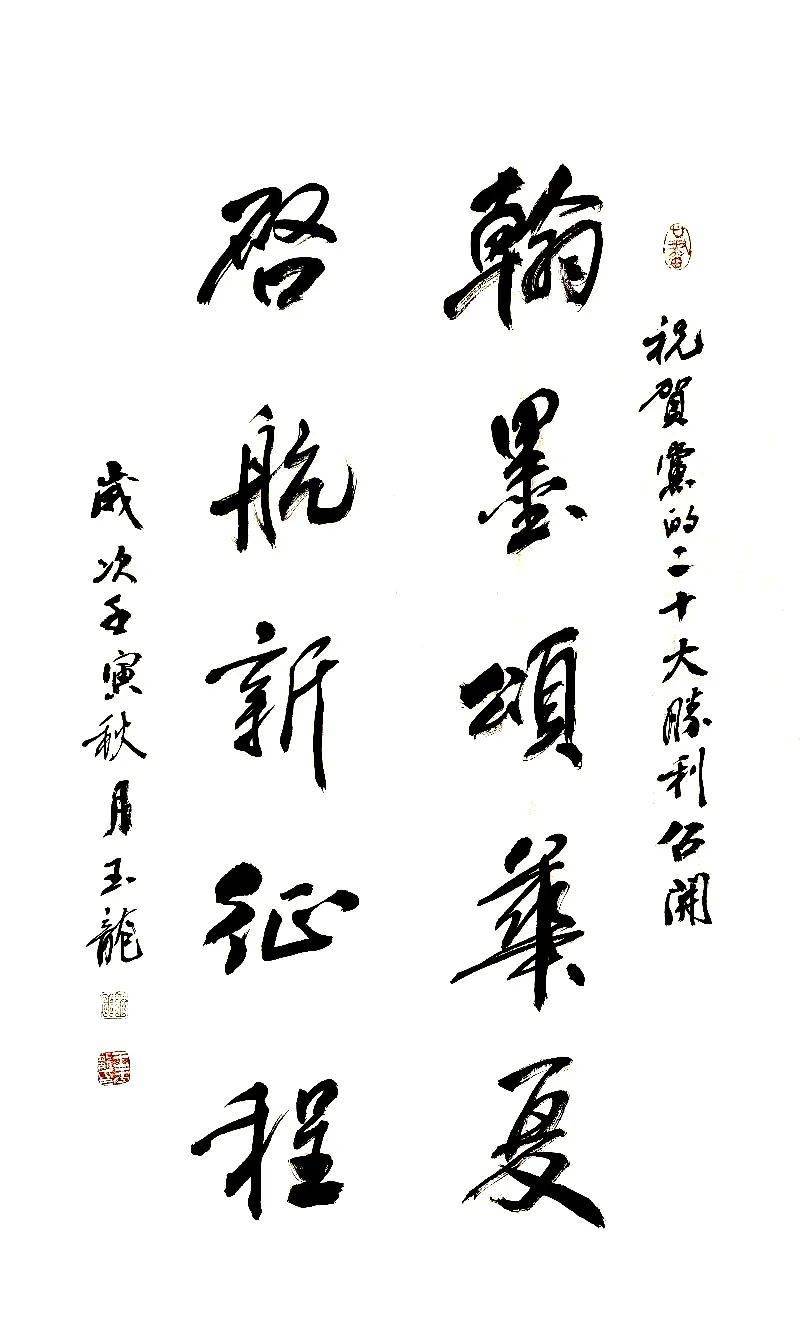 祝賀黨的二十大勝利召開
翰墨頌華夏
啓航新征程
歲次壬寅秋月玉龍